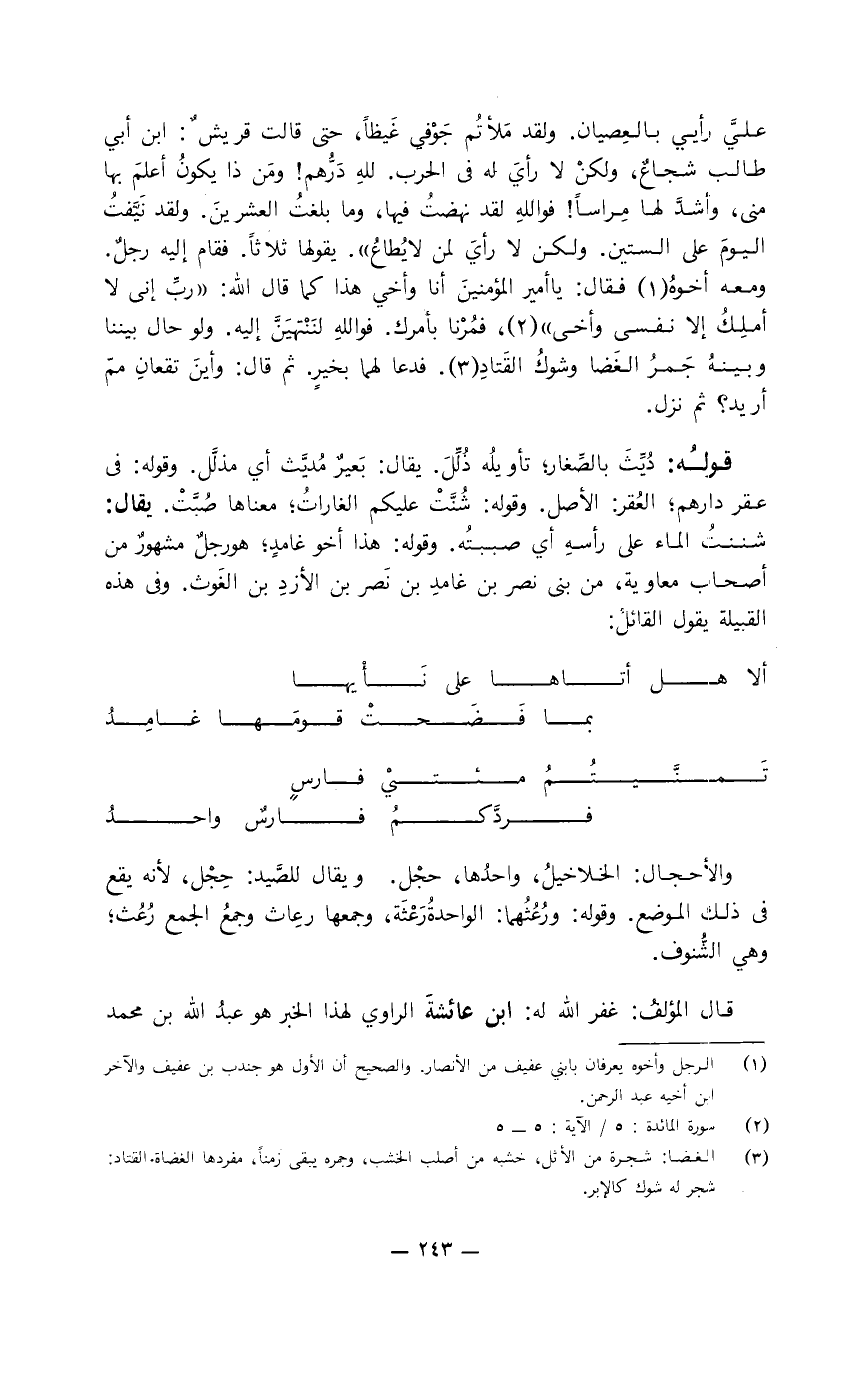 عليَّ رأيي بالعِصيان. ولقد مَلأتُم جَوْفي غَيظاً، حتى قالت قريشٌ: ابن أبي
طالب شجاعٌ، ولكنْ لا رأيَ له فى الحرب. للهِ دَرُّهم! ومَن ذا يكونُ أعلمَ بها
منى، وأشدَّ لها مِراساً! فواللهِ لقد نهضتُ فيها، وما بلغتُ العشرينَ. ولقد نَيَّفتُ
اليومَ على الستين. ولكن لا رأيَ لمن لايُطاعُ». يقولها ثلاثاً. فقام إليه رجلٌ.
ومعه أخوهُ(١) فقال: ياأمير المؤمنينَ أنا وأخي هذا كما قال الله: «ربِّ إنى لا
أملِكُ إلا نفسى وأخى»(٢)، فمُرْنا بأمرك. فواللهِ لنَنْتهيَنَّ إليه. ولو حال بيننا
وبينهُ جَمرُ الغَضا وشوكُ القَتادِ(٣). فدعا لهما بخيرٍ. ثم قال: وأينَ تقعانِ ممّ
أريد؟ ثم نزل.
قولُه: دُيِّثَ بالصِّغار؛ تأويلُه ذُلِّلَ. يقال: بَعيرٌ مُديَّث أي مذلَّل. وقوله: فى
عقر دارهم؛ العُقر: الأصل. وقوله: شُنَّتْ عليكم الغاراتُ؛ معناها صُبَّتْ. يقال:
شننتُ الماء على رأسهِ أي صببتُه. وقوله: هذا أخو غامدٍ؛ هورجلٌ مشهورٌ من
أصحاب معاوية، من بنى نصر بن غامدِ بن نَصر بن الأزدِ بن الغَوث. وفى هذه
القبيلة يقول القائلُ:
ألا هل أتاها على نَأْيها
بما فَضَحتْ قومَها غامِدُ
تَمنَّيتُمُ مئتيْ فارسٍ
فردَّكمُ فارسٌ واحدُ
والأحجال: الخلاخيلُ، واحدُها، حجْل. ويقال للصَّيد: حِجْل، لأنه يقع
فى ذلك الموضع. وقوله: ورُعُثُهما: الواحدةُرَعْثَة، وجمعها رعِاث وجمعُ الجمع رُعُث؛
وهي الشُّنوف.
قال المؤلفُ: غفر الله له: ابن عائشةَ الراوي لهذا الخبر هو عبدُ الله بن محمد
(١) الرجل وأخوه يعرفان بابني عفيف من الأنصار. والصحيح أن الأول هو جندب بن عفيف والآخر
ابن أخيه عبد الرحمن.
(٢) سورة المائدة : ٥ / الآية : ٥ ــ ٥
(٣) الغضا: شجرة من الأثل، خشبه من أصلب الخشب، وجمره يبقى زمناً، مفردها الغضاة. القتاد:
شجر له شوك كالإبر.
— ٢٤٣ —